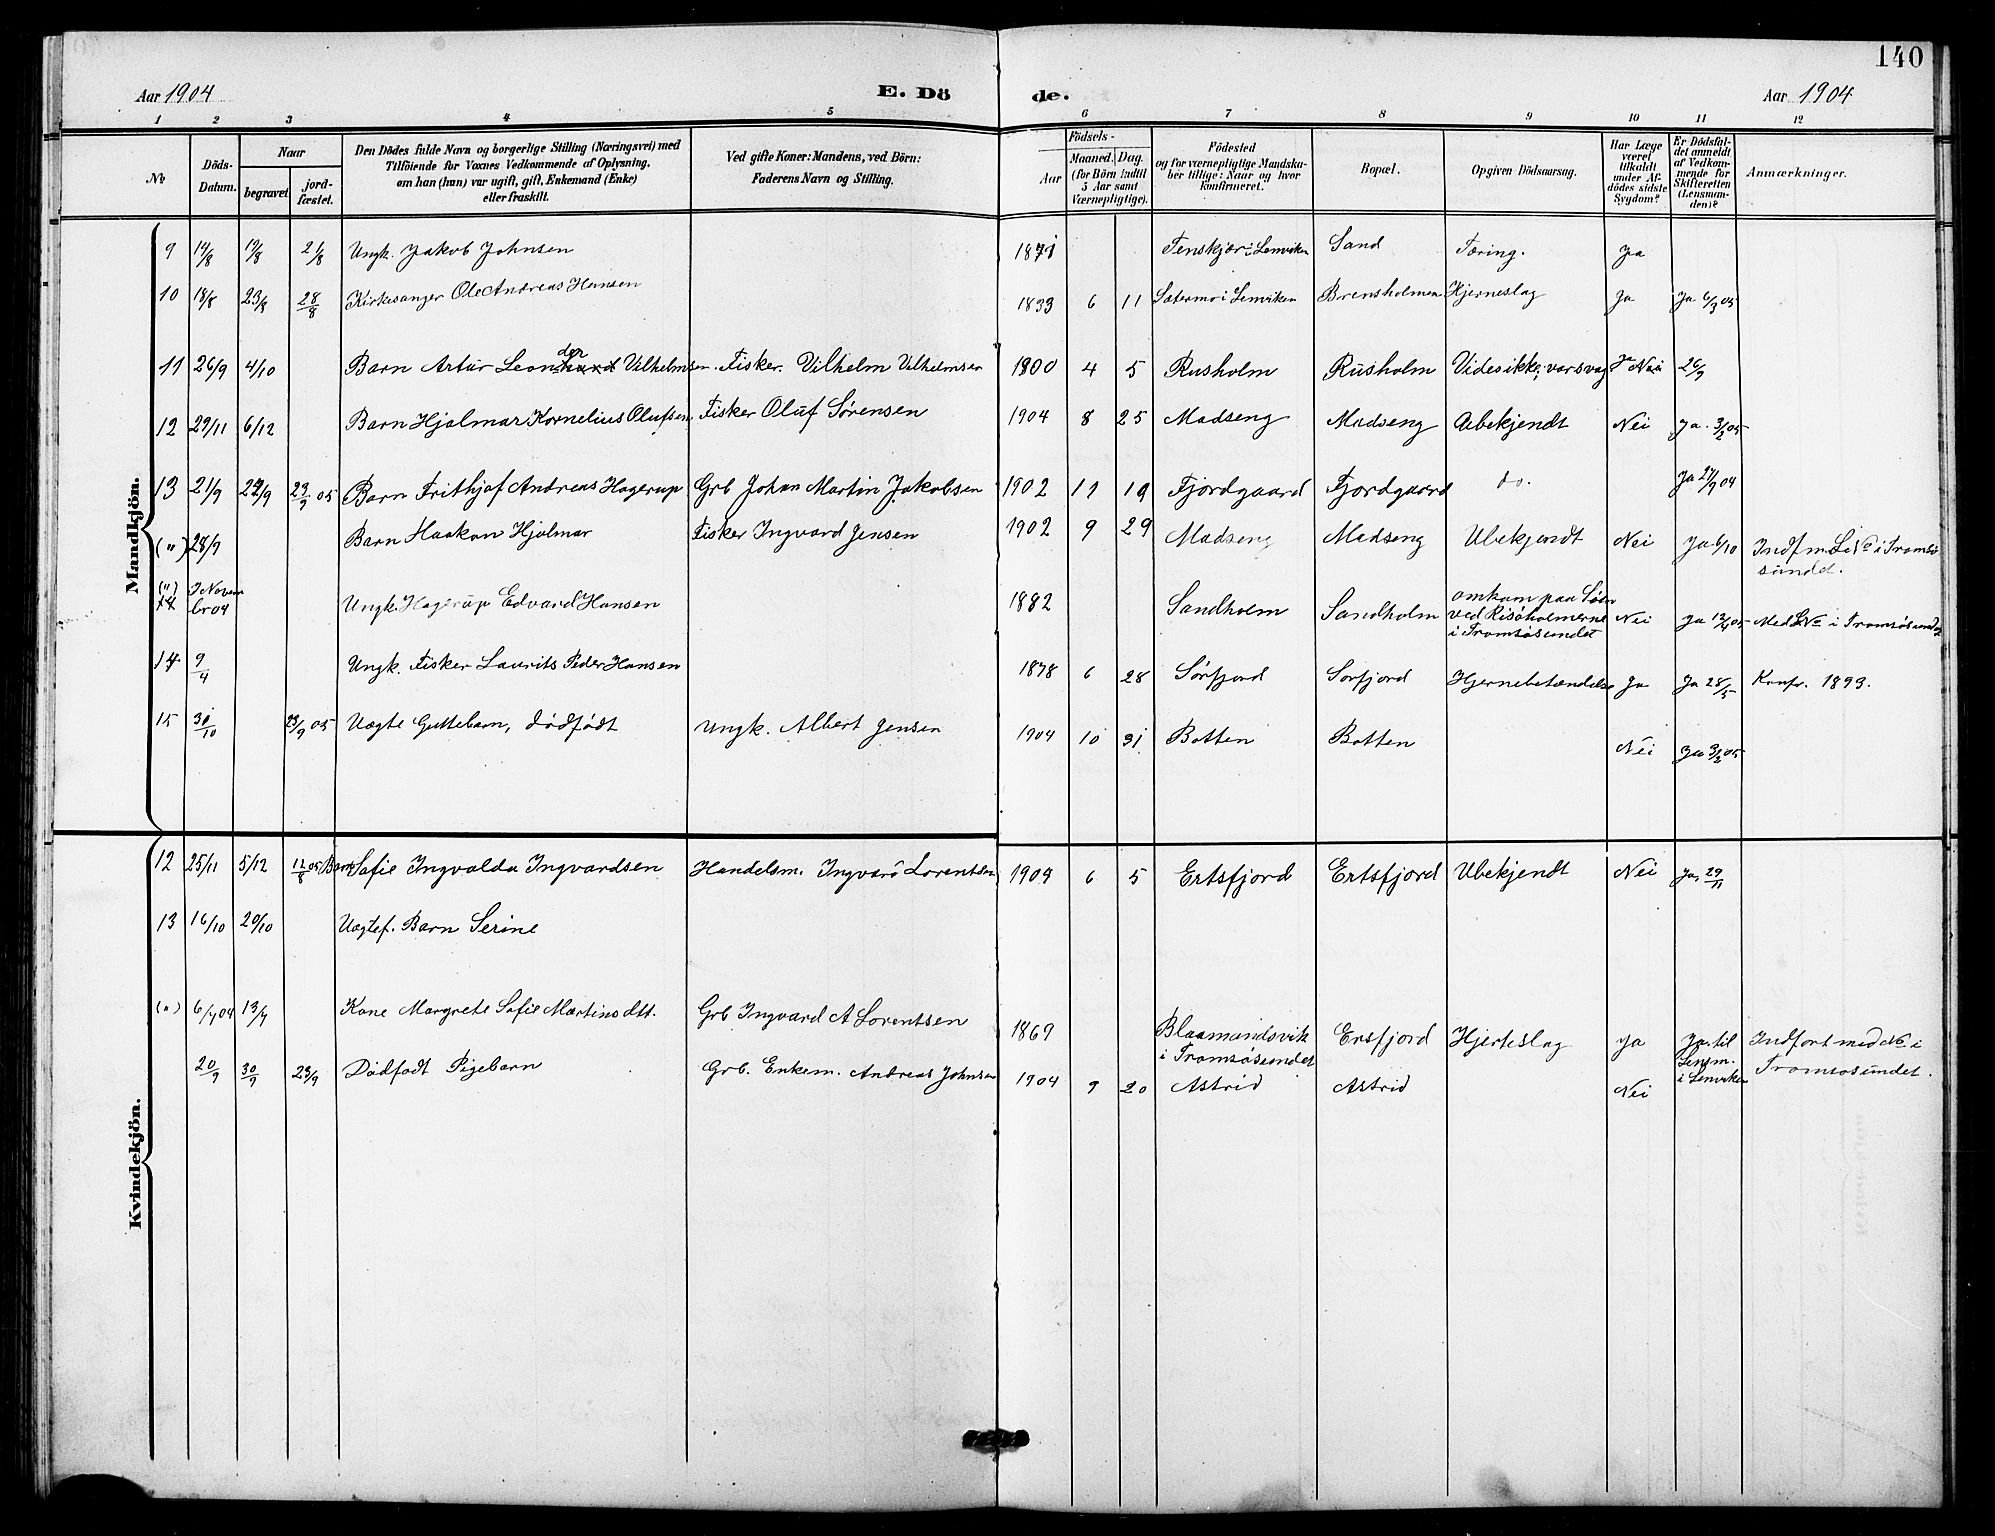 140
Aar 1904
E. Dö
de.
Aar 1904
1 2 3 4 5 6 7 8 9 10 11 12
№
Döds-
Datum.
Naar
begravet
jord-
fæstet.
Den Dödes fulde Navn og borgerlige Stilling (Næringsvei) med
Tilföiende for Voxnes Vedkommende af Oplysning,
om han (hun) var ugift, gift, Enkemand (Enke)
eller fraskilt.
Ved gifte Koner: Mandens, ved Börn:
Faderens Navn og Stilling.
Födsels-
Aar
Maaned. Dag.
(for Börn indtil
5 Aar samt
Værnepligtige).
Födested
og for værnepligtige Mandska-
ber tillige: Naar og hvor
konfirmeret.
Bopæl.
Opgiven Dödsaarsag.
Har Læge
været
tilkaldt
under Af-
dödes sidste
Sygdom?
Er Dödsfal-
det anmeldt
af Vedkom-
mende for
Skifteretten
(Lensman-
den)?
Anmærkninger.
Mandkjön.
9 14/8 19/8 21/8 Ungk. Jakob Johnsen 1871 Tenskjær i Lenviken Sand Tæring. Ja
10 18/8 23/8 28/8 Kirkesanger Ole Andreas Hansen 1833 6 11 Sætermo i Lenviken Brensholmen Hjerneslag Ja Ja 6/3 05
der
11 26/9 4/10 Barn Artur Leonhard Vilhelmsen. Fisker. Vilhelm Vilhelmsen 1800 4 5 Rusholm Rusholm Vides ikke; var svag Nei 26/9
12 29/11 6/12 Barn Hjalmar Kornelius Olufsen Fisker Oluf Sørensen 1904 8 25 Madseng Madseng Ubekjendt Nei Ja. 3/2 05
13 21/9 22/9 23/9 05 Barn Frithjof Andreas Hagerup Grb Johan Martin Jakobsen 1902 11 19 Fjordgaard Fjordgaard do. Ja 27/9 04
(") 28/9 Barn Haakon Hjalmar Fisker Ingvard Jensen 1902 9 29 Madseng Madseng Ubekjendt Nei Ja 6/10 Indf m. L№ i Tromsø
sundet.
(") 14 I Novem
br 04 Ungk. Hagerup Edvard Hansen 1882 Sandholm Sandholm omkom paa Søen
ved Risøholmerne
i Tromsøsundet Nei Ja 12/4 05 Med L№ i Tromsøsundet
14 9/4 Ungk. Fisker Laurits Peder Hansen 1878 6 28 Sørfjord Sørfjord Hjernebetændelse Ja Ja 28/5 Konfr. 1893.
15 30/10 23/9 05 Uægte Guttebarn, dødfødt Ungk. Albert Jensen 1904 10 31 Botten Botten Nei Ja 3/2 05
Kvindekjön.
12 25/11 5/12 12/8 05 Barn Sofie Ingvalda Ingvardsen Handelsm. Ingvard Lorentsen 1904 6 5 Ertsfjord Ertsfjord Ubekjendt Nei Ja, 29/11
13 16/10 20/10 Uægtef. Barn Serine
(") 6/4 04 13/4 Kone Margrete Sofie Martinsdtt. Grb Ingvard A Lorentsen 1869 Blaamandsvik
i Tromsøsundet Ersfjord Hjerteslag Ja Ja, til
Lensm.
i Lenviken Indført med № i
Tromsøsundet.
20/9 30/9 23/9 Dødfødt Pigebarn Grb. Enkem. Andreas Johnsen 1904 9 20 Astrid Astrid Nei